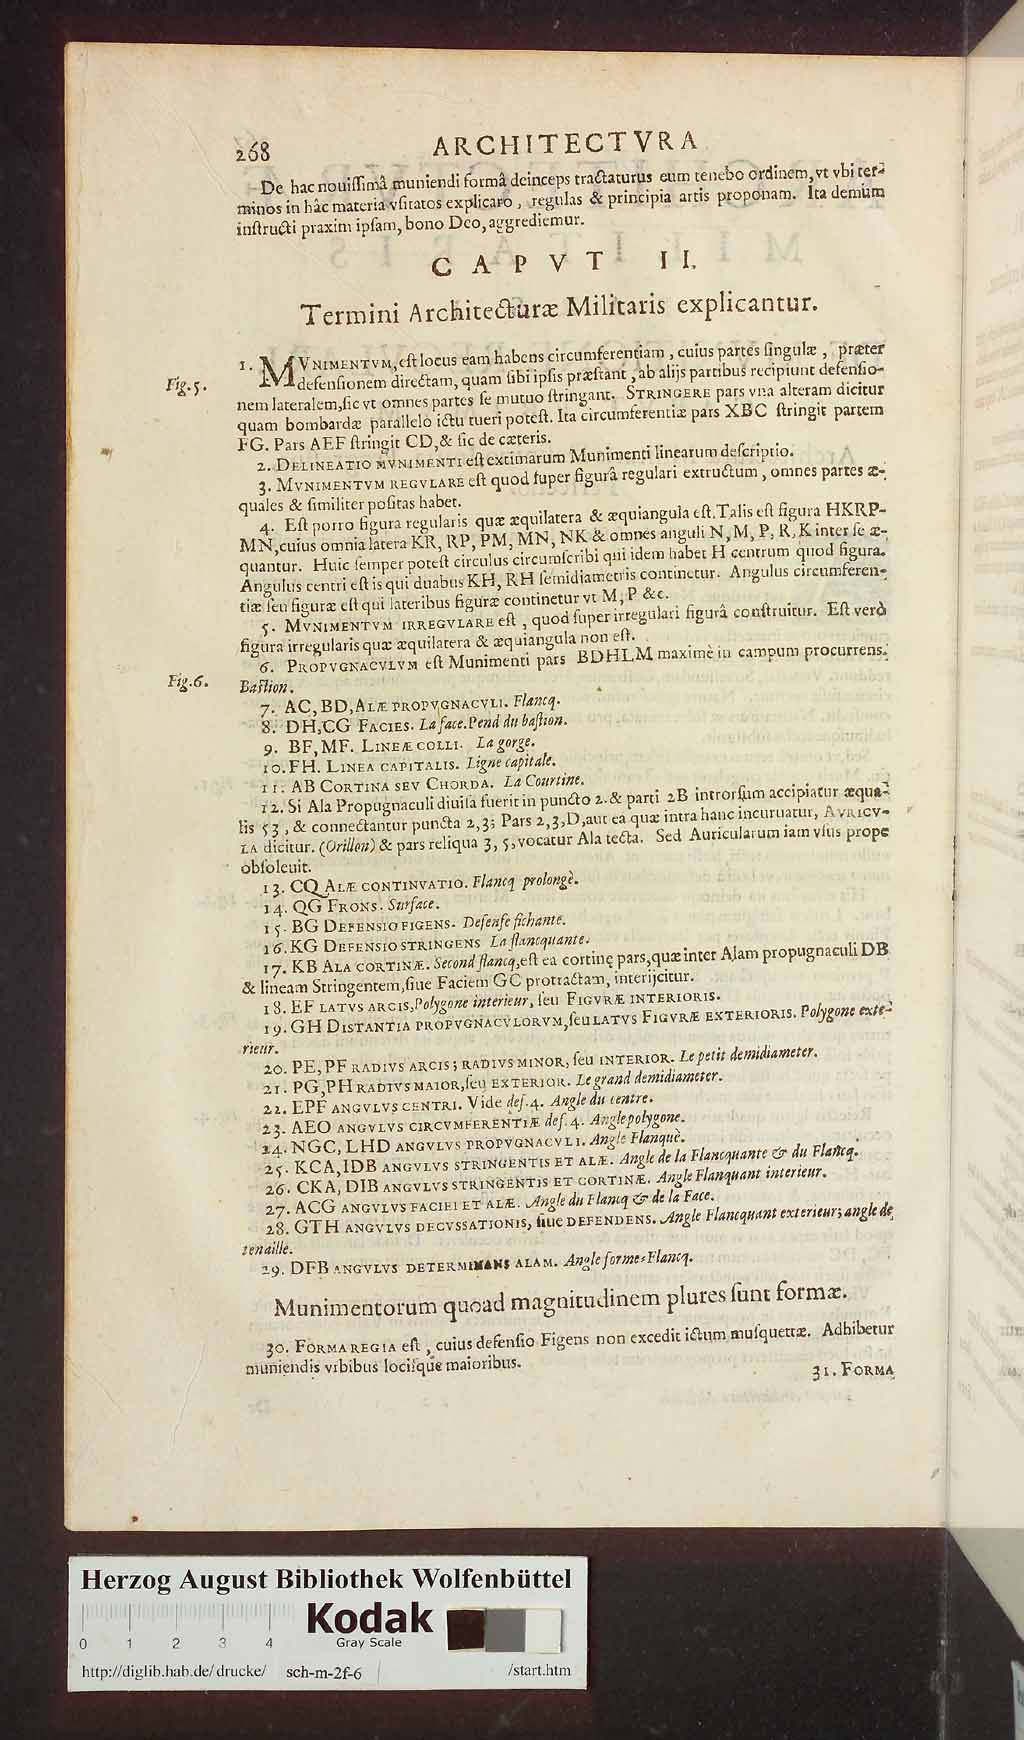 268 ARCHITECTVRA
De hac nouiſſimâ muniendi formâ deinceps tractaturus eum tenebo ordinem, vt vbi ter-
minos in hâc materia vſitatos explicaro, regulas & principia artis proponam. Ita demùm
inſtructi praxim ipſam, bono Deo, aggrediemur.
CAPVT II.
Termini Architecturæ Militaris explicantur.
1. MVNIMENTVM, eſt locus eam habens circumferentiam, cuius partes ſingulæ, præter
Fig. 5. defenſionem directam, quam ſibi ipſis præſtant, ab alijs partibus recipiunt defenſio-
nem lateralem, ſic vt omnes partes ſe mutuo ſtringant. STRINGERE pars vna alteram dicitur
quam bombardæ parallelo ictu tueri poteſt. Ita circumferentiæ pars XBC ſtringit partem
FG. Pars AEF ſtringit CD, & ſic de cæteris.
2. DELINEATIO MVNIMENTI eſt extimarum Munimenti linearum deſcriptio.
3. MVNIMENTVM REGVLARE eſt quod ſuper figurâ regulari extructum, omnes partes æ-
quales & ſimiliter poſitas habet.
4. Eſt porro figura regularis quæ æquilatera & æquiangula eſt. Talis eſt figura HKRP-
MN, cuius omnia latera KR, RP, PM, MN, NK & omnes anguli N, M, P, R, K inter ſe æ-
quantur. Huic ſemper poteſt circulus circumſcribi qui idem habet H centrum quod figura.
Angulus centri eſt is qui duabus KH, RH ſemidiametris continetur. Angulus circumferen-
tiæ ſeu figuræ eſt qui lateribus figuræ continetur vt M, P &c.
5. MVNIMENTVM IRREGVLARE eſt, quod ſuper irregulari figurâ conſtruitur. Eſt verò
figura irregularis quæ æquilatera & æquiangula non eſt.
6. PROPVGNACVLVM eſt Munimenti pars BDHLM maximè in campum procurrens.
Fig. 6. Baſtion.
7. AC, BD, ALÆ PROPVGNACVLI. Flancq.
8. DH, CG FACIES. La face. Pend du baſtion.
9. BF, MF. LINEÆ COLLI. La gorge.
10. FH. LINEA CAPITALIS. Ligne capitale.
11. AB CORTINA SEV CHORDA. La Courtine.
12. Si Ala Propugnaculi diuiſa fuerit in puncto 2. & parti 2B introrſum accipiatur æqua-
lis 53, & connectantur puncta 2, 3; Pars 2, 3, D, aut ea quæ intra hanc incuruatur, AVRICV-
LA dicitur. (Orillon) & pars reliqua 3, 5, vocatur Ala tecta. Sed Auricularum iam vſus prope
obſoleuit.
13. CQ ALÆ CONTINVATIO. Flancq prolongè.
14. QG FRONS. Surface.
15. BG DEFENSIO FIGENS. Defenſe fichante.
16. KG DEFENSIO STRINGENS La flancquante.
17. KB ALA CORTINÆ. Second flancq, eſt ea cortinę pars, quæ inter Alam propugnaculi DB
& lineam Stringentem, ſiue Faciem GC protractam, interijcitur.
18. EF LATVS ARCIS, Polygone interieur, ſeu FIGVRÆ INTERIORIS.
19. GH DISTANTIA PROPVGNACVLORVM, ſeu LATVS FIGVRÆ EXTERIORIS. Polygone exte-
rieur.
20. PE, PF RADIVS ARCIS; RADIVS MINOR, ſeu INTERIOR. Le petit demidiameter.
21. PG, PH RADIVS MAIOR, ſeu EXTERIOR. Le grand demidiameter.
22. EPF ANGVLVS CENTRI. Vide def. 4. Angle du centre.
23. AEO ANGVLVS CIRCVMFERENTIÆ def. 4. Angle polygone.
24. NGC, LHD ANGVLVS PROPVGNACVLI. Angle Flanquè.
25. KCA, IDB ANGVLVS STRINGENTIS ET ALÆ. Angle de la Flancquante & du Flancq.
26. CKA, DIB ANGVLVS STRINGENTIS ET CORTINÆ. Angle Flanquant interieur.
27. ACG ANGVLVS FACIEI ET ALÆ. Angle du Flancq & de la Face.
28. GTH ANGVLVS DECVSSATIONIS, ſiue DEFENDENS. Angle Flancquant exterieur; angle de
tenaille.
29. DFB ANGVLVS DETERMINANS ALAM. Angle forme-Flancq.
Munimentorum quoad magnitudinem plures ſunt formæ.
30. FORMA REGIA eſt, cuius defenſio Figens non excedit ictum muſquettæ. Adhibetur
muniendis vrbibus lociſque maioribus.
31. FORMA
Herzog August Bibliothek Wolfenbüttel
0 1 2 3 4
Kodak
Gray Scale
http://diglib.hab.de/drucke/ sch-m-2f-6 /start.htm